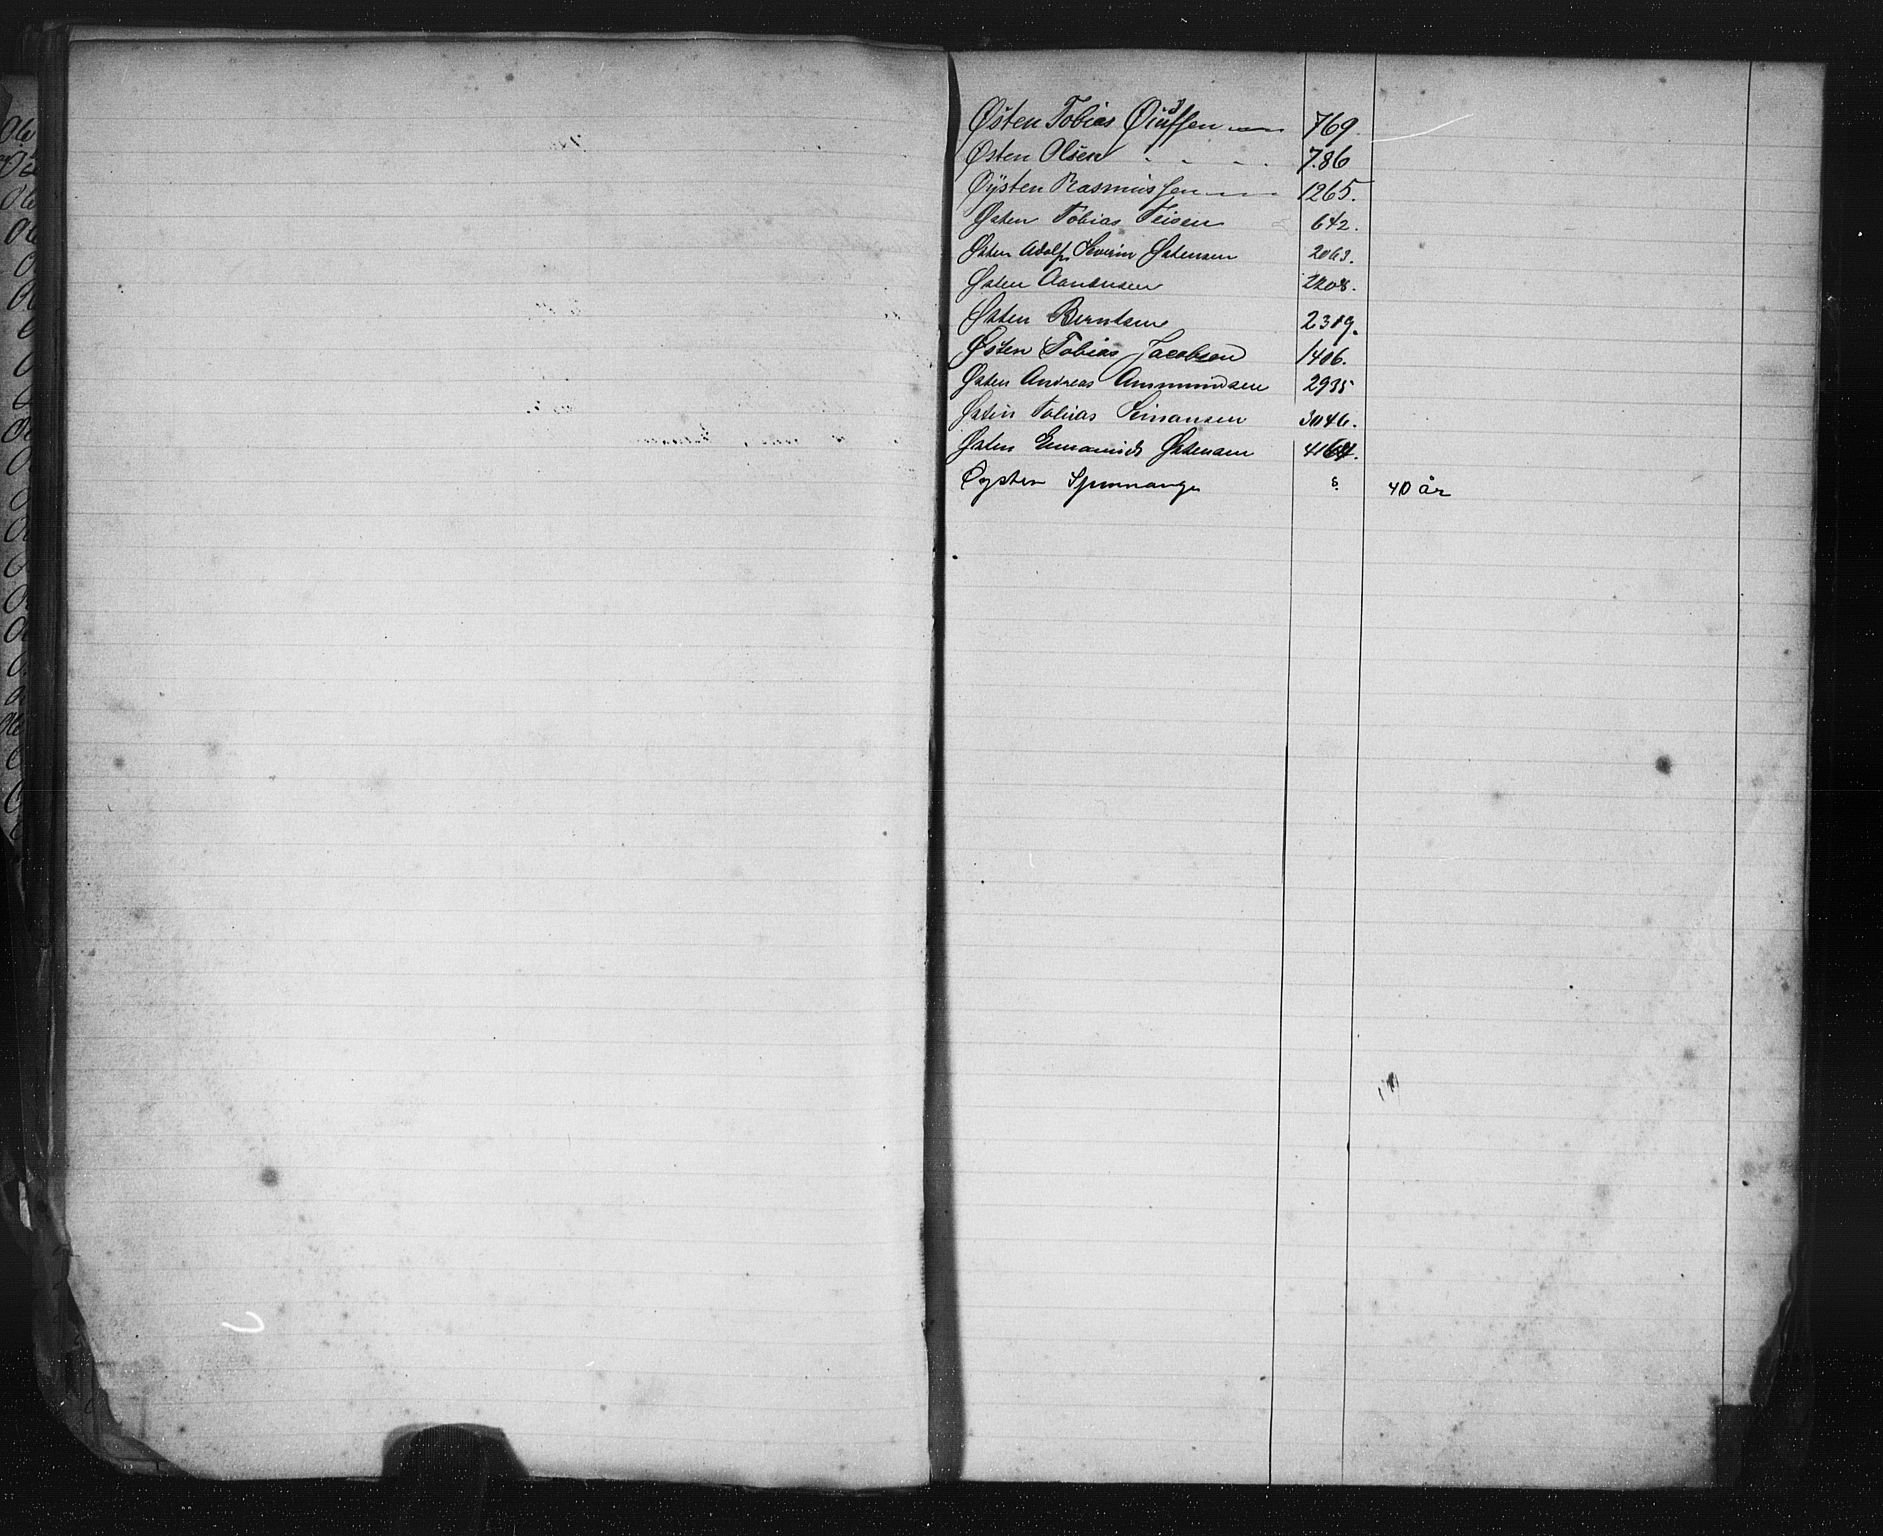 Østen Tobias 769.
Østen Olsen 786
Øÿsten Rasmussen 1265.
Østen Tobias Teisen 642.
Østen Adolf Severin Østensen 2063.
Østen Aanensen 2208.
Østen Berntsen 2319.
Østen Tobias Jacobsen 1406.
Østen Andreas Ammundsen 2935
Østen Tobias 3046.
Østen Østensen 4164.
Øysten s. 40 år